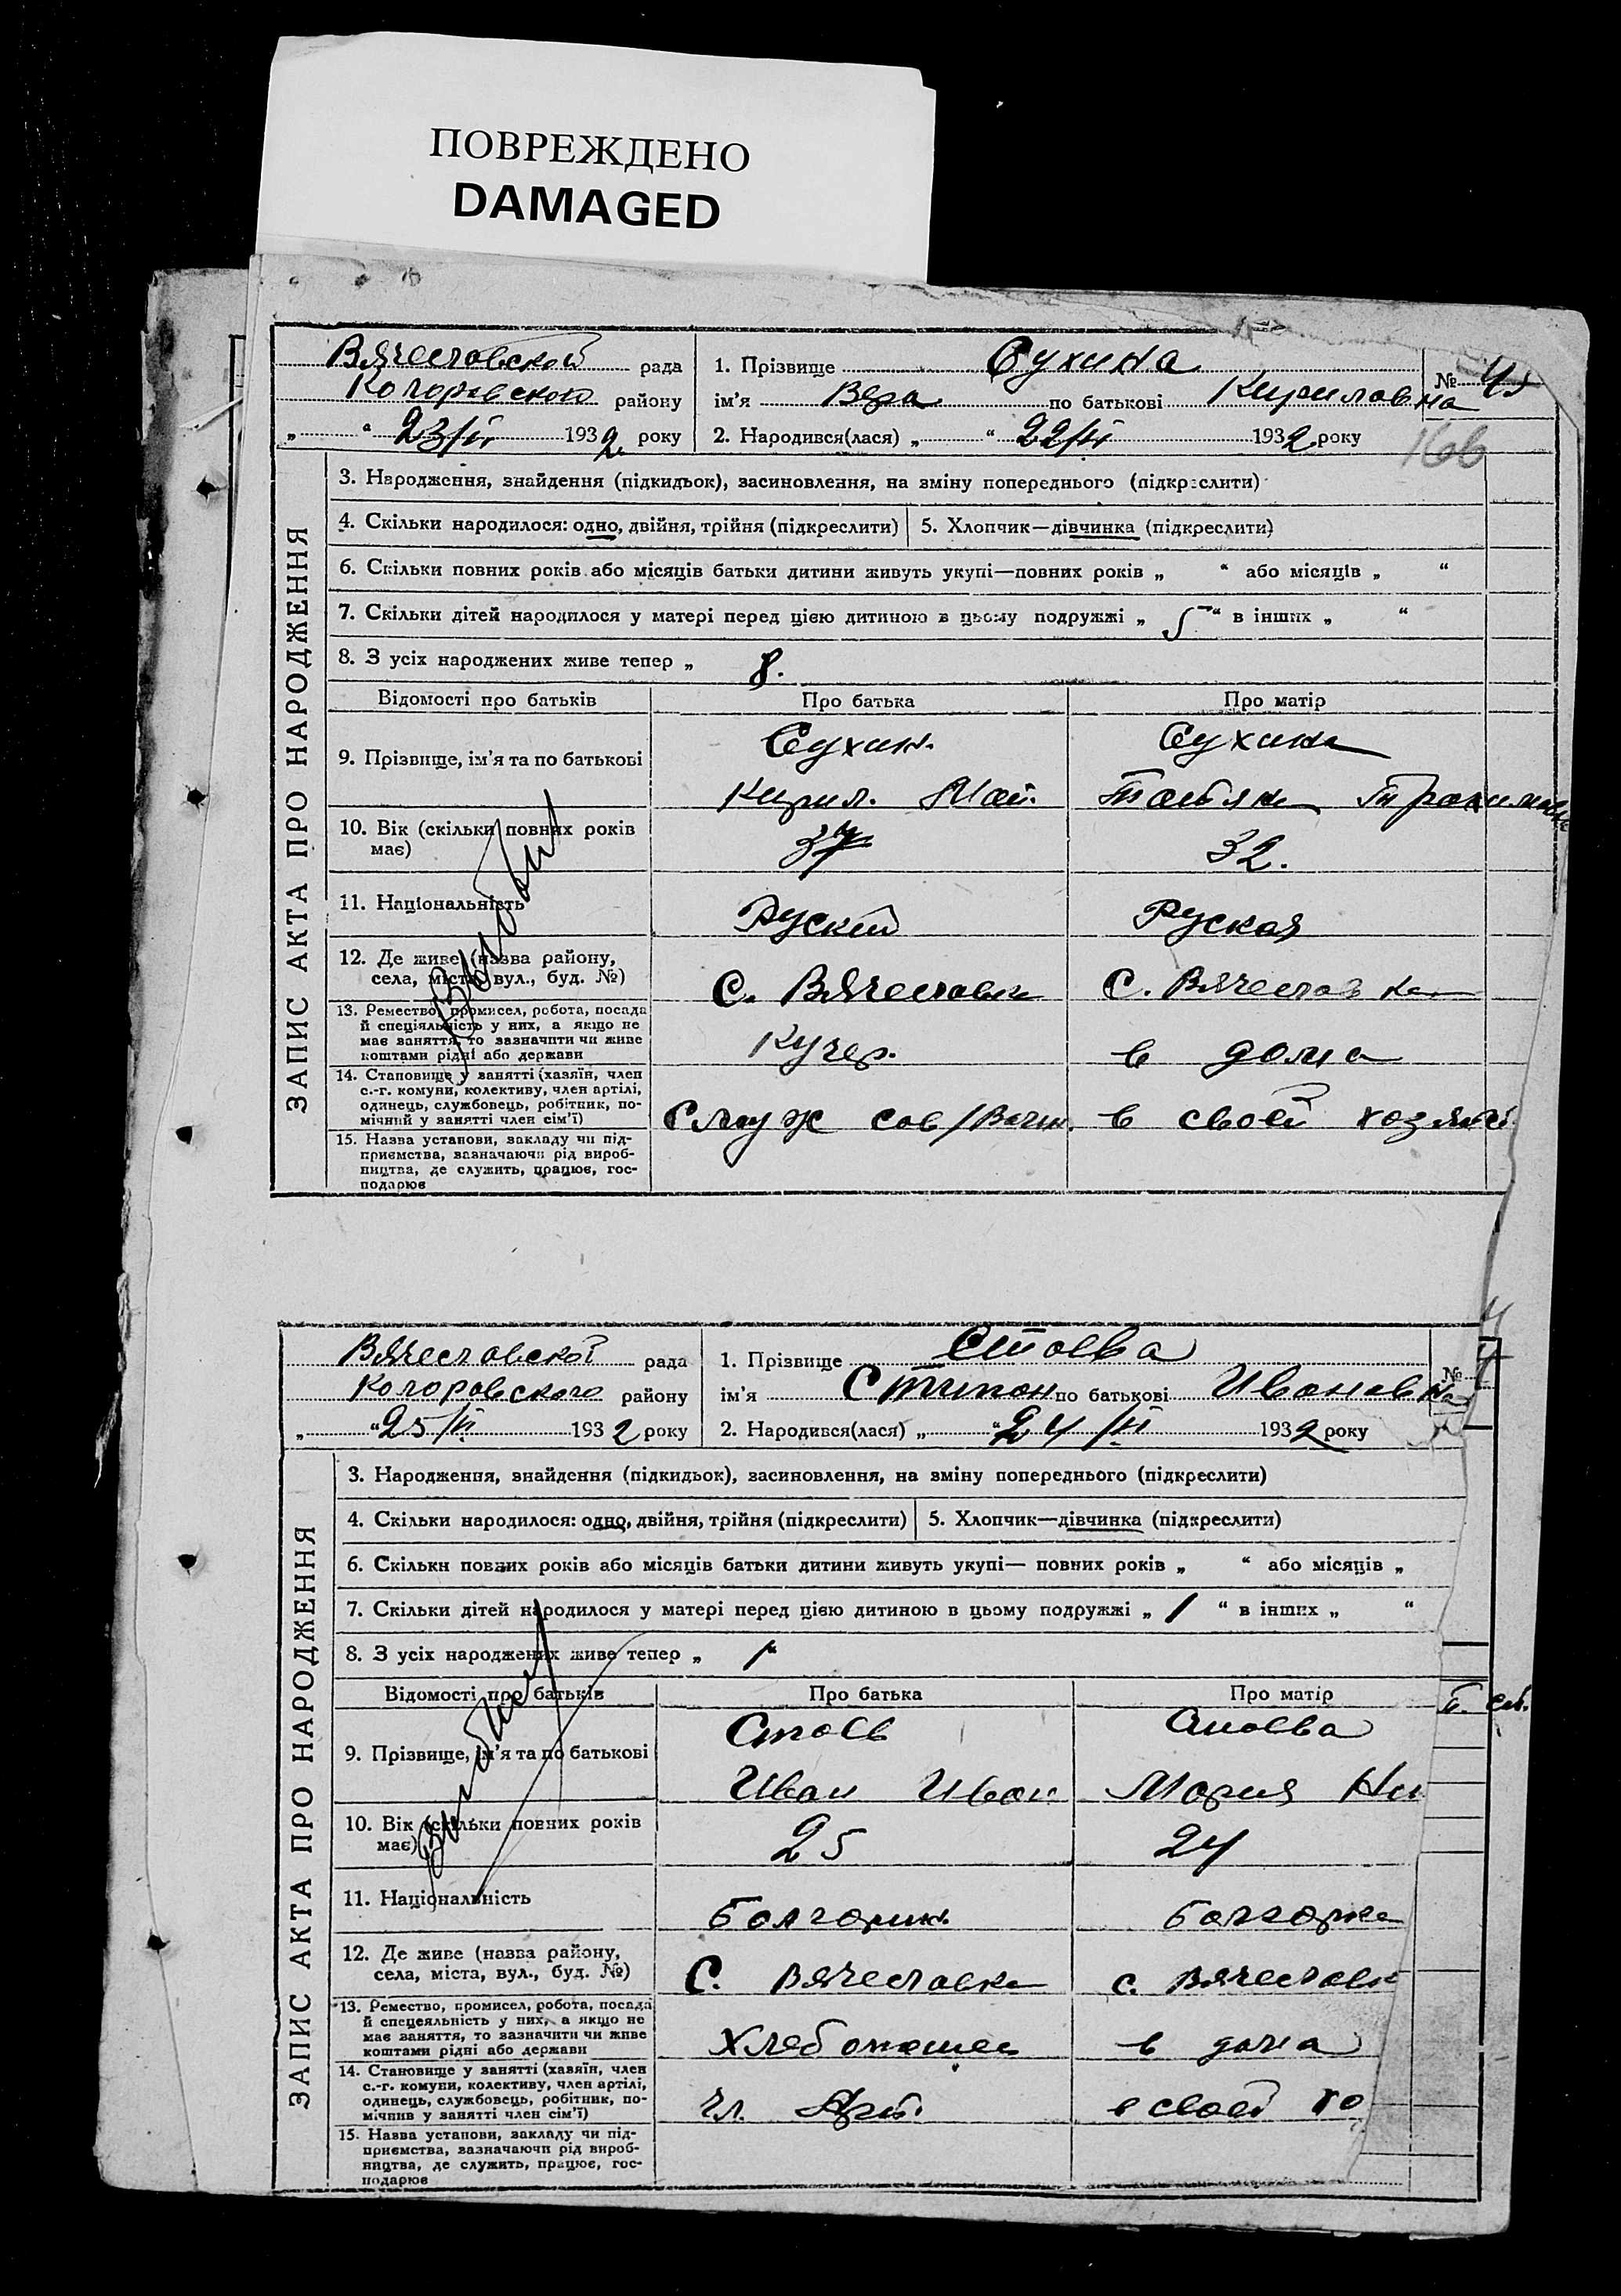 ПОВРЕЖДЕНО
DAMAGED
Вячеславской рада
Коларовского району
„ “ 23/VI 1932 року
1. Прізвище Сухина
ім’я Вера по батькові Кириловна
2. Народився(лася) „ “ 22/VI 1932 року
№ 45
166
ЗАПИС АКТА ПРО НАРОДЖЕННЯ
3. Народження, знайдення (підкидьок), засиновлення, на зміну попереднього (підкреслити)
4. Скільки народилося: одно, двійня, трійня (підкреслити) 5. Хлопчик—дівчинка (підкреслити)
6. Скільки повних років або місяців батьки дитини живуть укупі—повних років „ “ або місяців „ “
7. Скільки дітей народилося у матері перед цією дитиною в цьому подружжі „ 5 “ в інших „ “
8. З усіх народжених живе тепер „ 8.
Відомості про батьків Про батька Про матір
9. Прізвище, ім’я та по батькові
Сухин. Сухина
Кирил. Татьяна
10. Вік (скільки повних років
має)
37 32.
11. Національність
Руский Руская
12. Де живе (назва району,
села, міста, вул., буд. №)
С. Вячеславка С. Вячеславка
13. Ремество, промисел, робота, посада
й спеціяльність у них, а якщо не
має заняття, то зазначити чи живе
коштами рідні або держави
Кучер. в дома
14. Становище у занятті (хазяїн, член
с.-г. комуни, колективу, член артілі,
одинець, службовець, робітник, по-
мічний у занятті член сім’ї)
Служ сов в своей хозяйс
15. Назва установи, закладу чи під-
приємства, зазначаючи рід вироб-
ництва, де служить, працює, гос-
подарює
Вячеславской рада
Коларовского району
„ “ 25/VI 1932 року
1. Прізвище Стоева
ім’я по батькові Ивановна
2. Народився(лася) „ “ 24/VI 1932 року
№
ЗАПИС АКТА ПРО НАРОДЖЕННЯ
3. Народження, знайдення (підкидьок), засиновлення, на зміну попереднього (підкреслити)
4. Скільки народилося: одно, двійня, трійня (підкреслити) 5. Хлопчик—дівчинка (підкреслити)
6. Скільки повних років або місяців батьки дитини живуть укупі— повних років „ “ або місяців „
7. Скільки дітей народилося у матері перед цією дитиною в цьому подружжі „ 1 “ в інших „ “
8. З усіх народжених живе тепер „ 1“
Відомості про батьків Про батька Про матір
9. Прізвище, ім’я та по батькові
Стоев Стоева
Иван Иван Мария Ни
10. Вік (скільки повних років
має)
25 24
11. Національність
Болгарин Болгарка
12. Де живе (назва району,
села, міста, вул., буд. №)
С. Вячеславка с. Вячеславк
13. Ремество, промисел, робота, посада
й спецеяльність у них, а якщо не
має заняття, то зазначити чи живе
коштами рідні або держави
Хлебопашец в дома
14. Становище у занятті (хазяїн, член
с.-г. комуни, колективу, член артілі,
одинець, службовець, робітник, по-
мічнив у занятті член сім’ї)
Чл. Арт. в своей хо
15. Назва установи, закладу чи під-
приємства, зазначаючи рід вироб-
ництва, де служить, працює, гос-
подарює